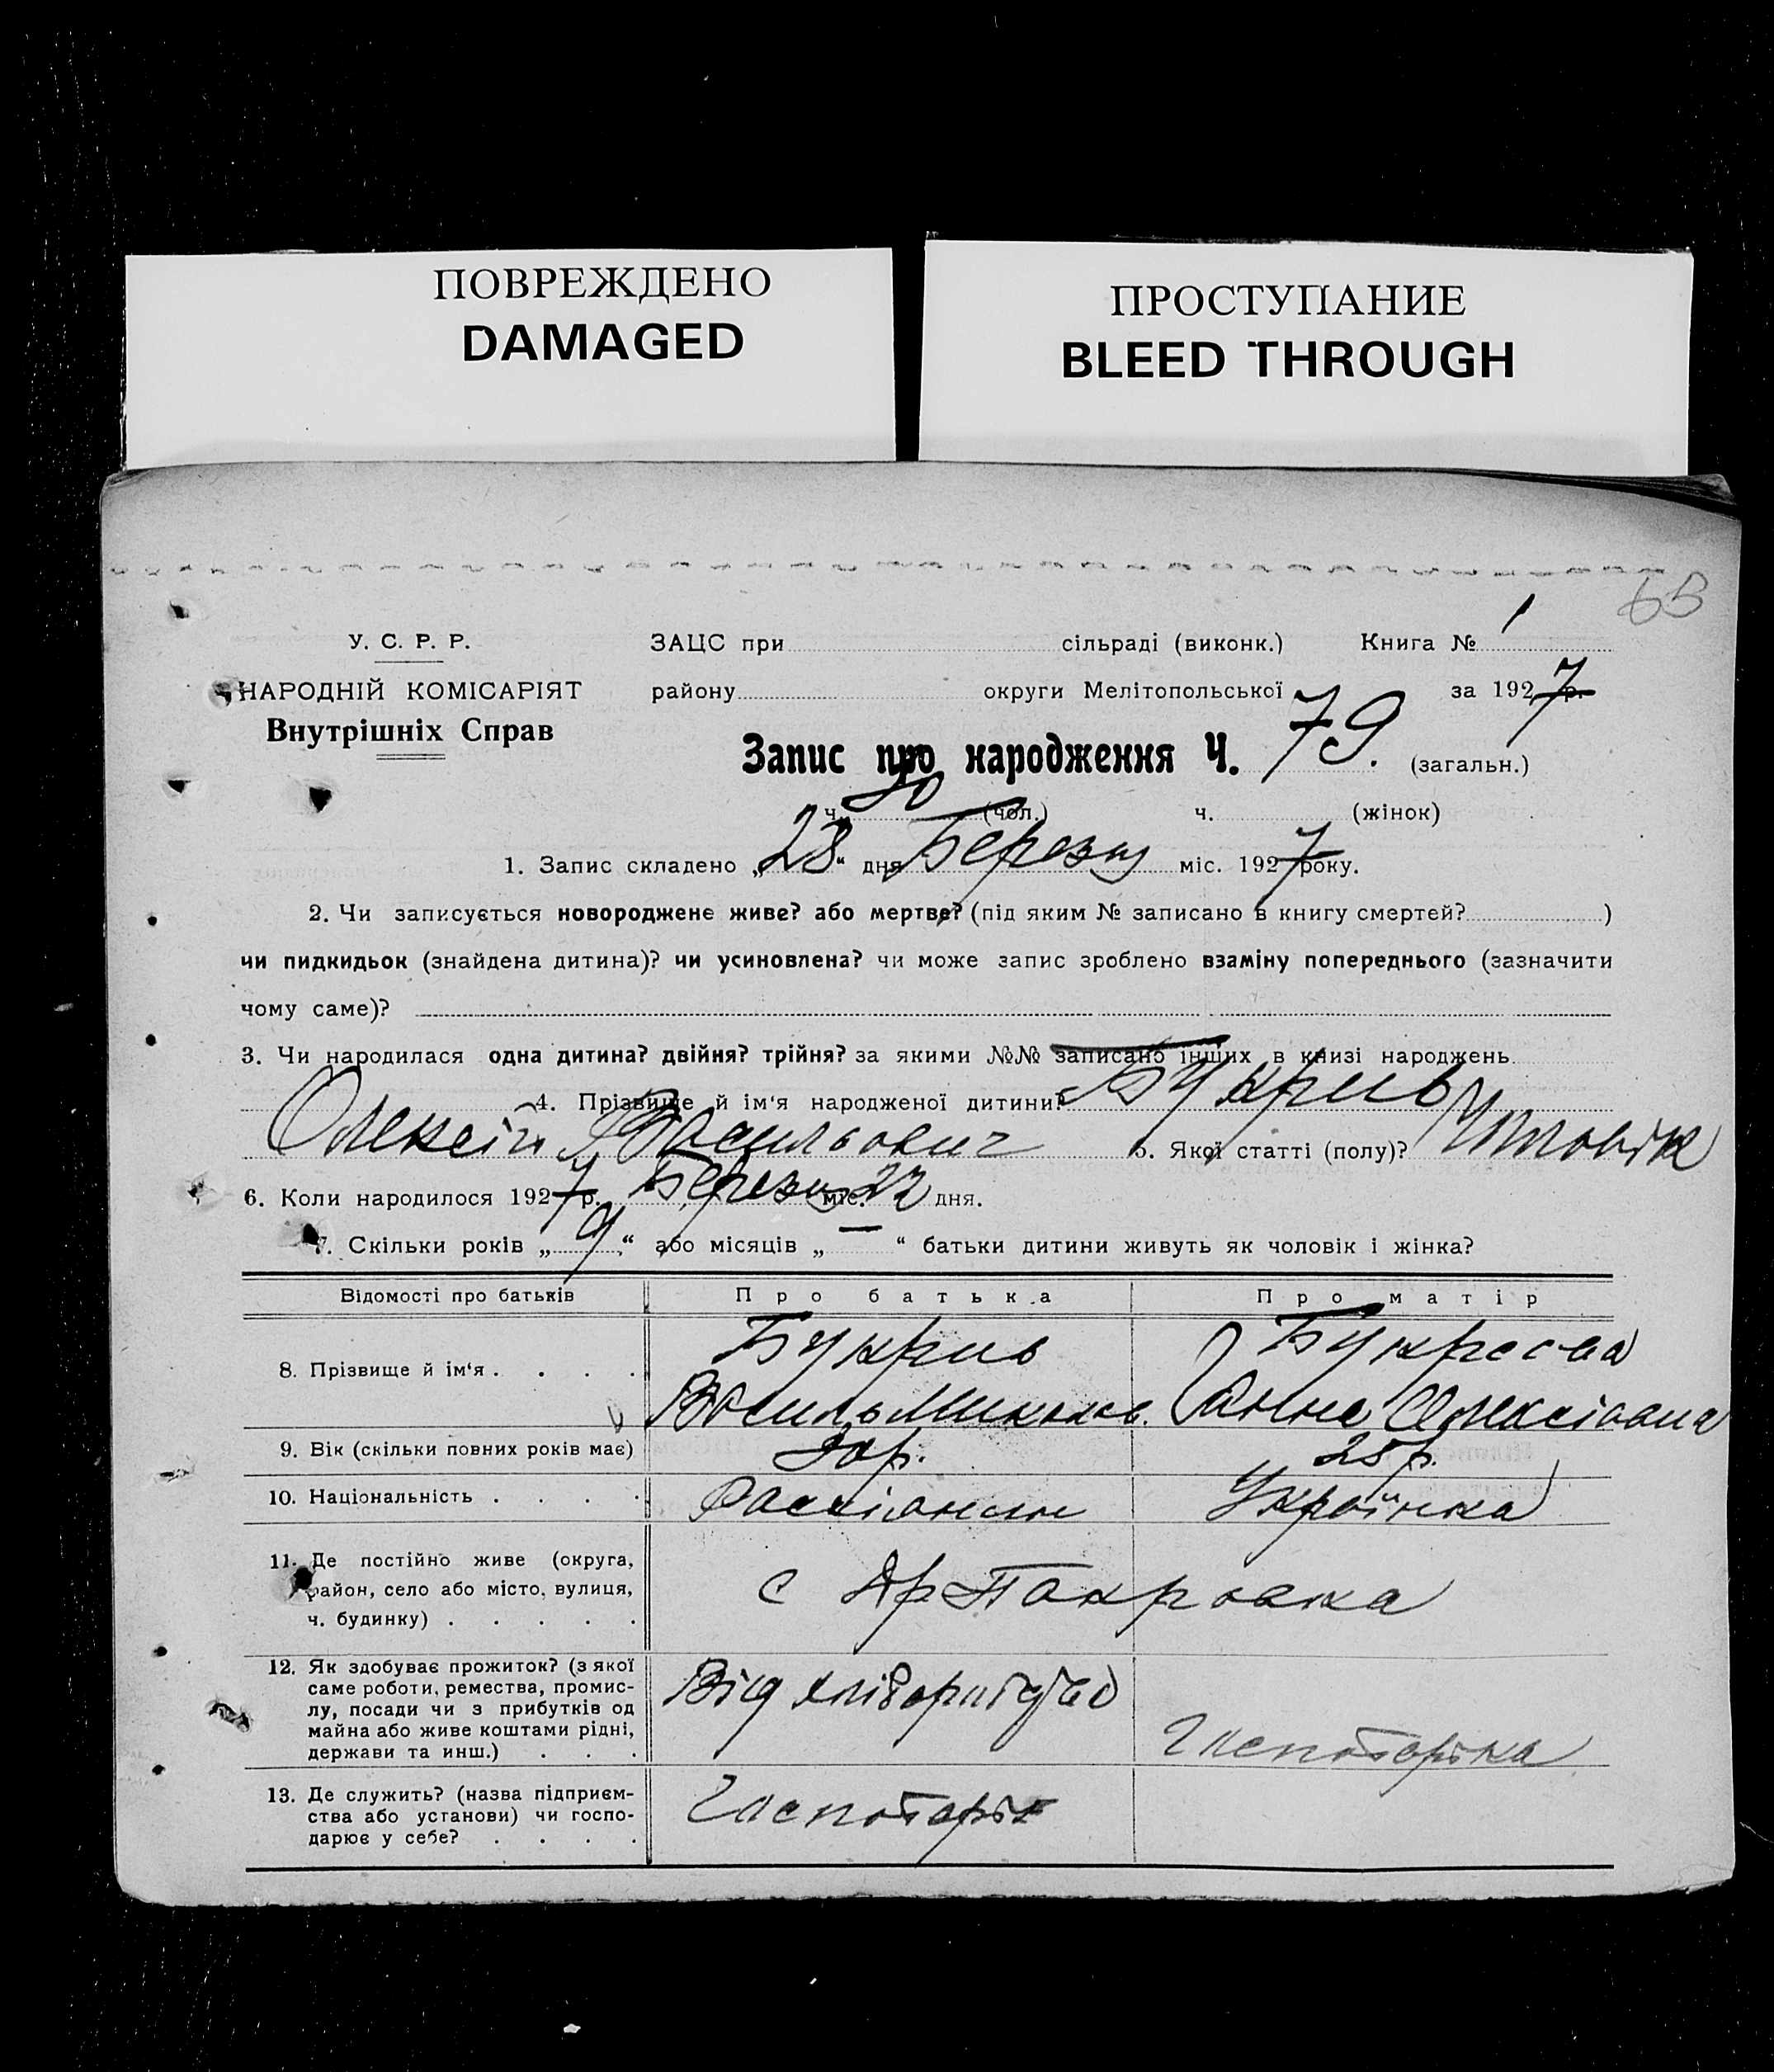 ПОВРЕЖДЕНО
DAMAGED
ПРОСТУПАНИЕ
BLEED THROUGH
У. С. Р. Р.
НАРОДНІЙ КОМІСАРІЯТ
Внутрішніх Справ
ЗАЦС при сільраді (виконк.) Книга № 1
району округи Мелітопольської за 1927 р.
Запис про народження Ч. 79. (загальн.)
ч. (чол.) ч. (жінок)
1. Запис складено „28“ дня Березня міс. 1927 року.
2. Чи записується новороджене живе? або мертве? (під яким № записано в книгу смертей? )
чи пидкидьок (знайдена дитина)? чи усиновлена? чи може запис зроблено взаміну попереднього (зазначити
чому саме)?
3. Чи народилася одна дитина? двійня? трійня? за якими №№ записано інших в книзі народжень
4. Прізвище й ім‘я народженої дитини?
Олексій Васильович 5. Якої статті (полу)? Чоловік
6. Коли народилося 1927 р. Березня міс. 22 дня.
7. Скільки років „9“ або місяців „—“ батьки дитини живуть як чоловік і жінка?
Відомості про батьків Про батька Про матір
8. Прізвище й ім‘я . . . .
Василь Микол. Ганна Олексіовна
9. Вік (скільки повних років має) 30 р. 25 р.
10. Національність . . . . Українка
11. Де постійно живе (округа,
район, село або місто, вулиця,
ч. будинку) . . . . .
с Покровка
12. Як здобуває прожиток? (з якої
саме роботи, ремества, промис-
лу, посади чи з прибутків од
майна або живе коштами рідні,
держави та инш.) . . .
Від
13. Де служить? (назва підприєм-
ства або установи) чи госпо-
дарює у себе? . . . .